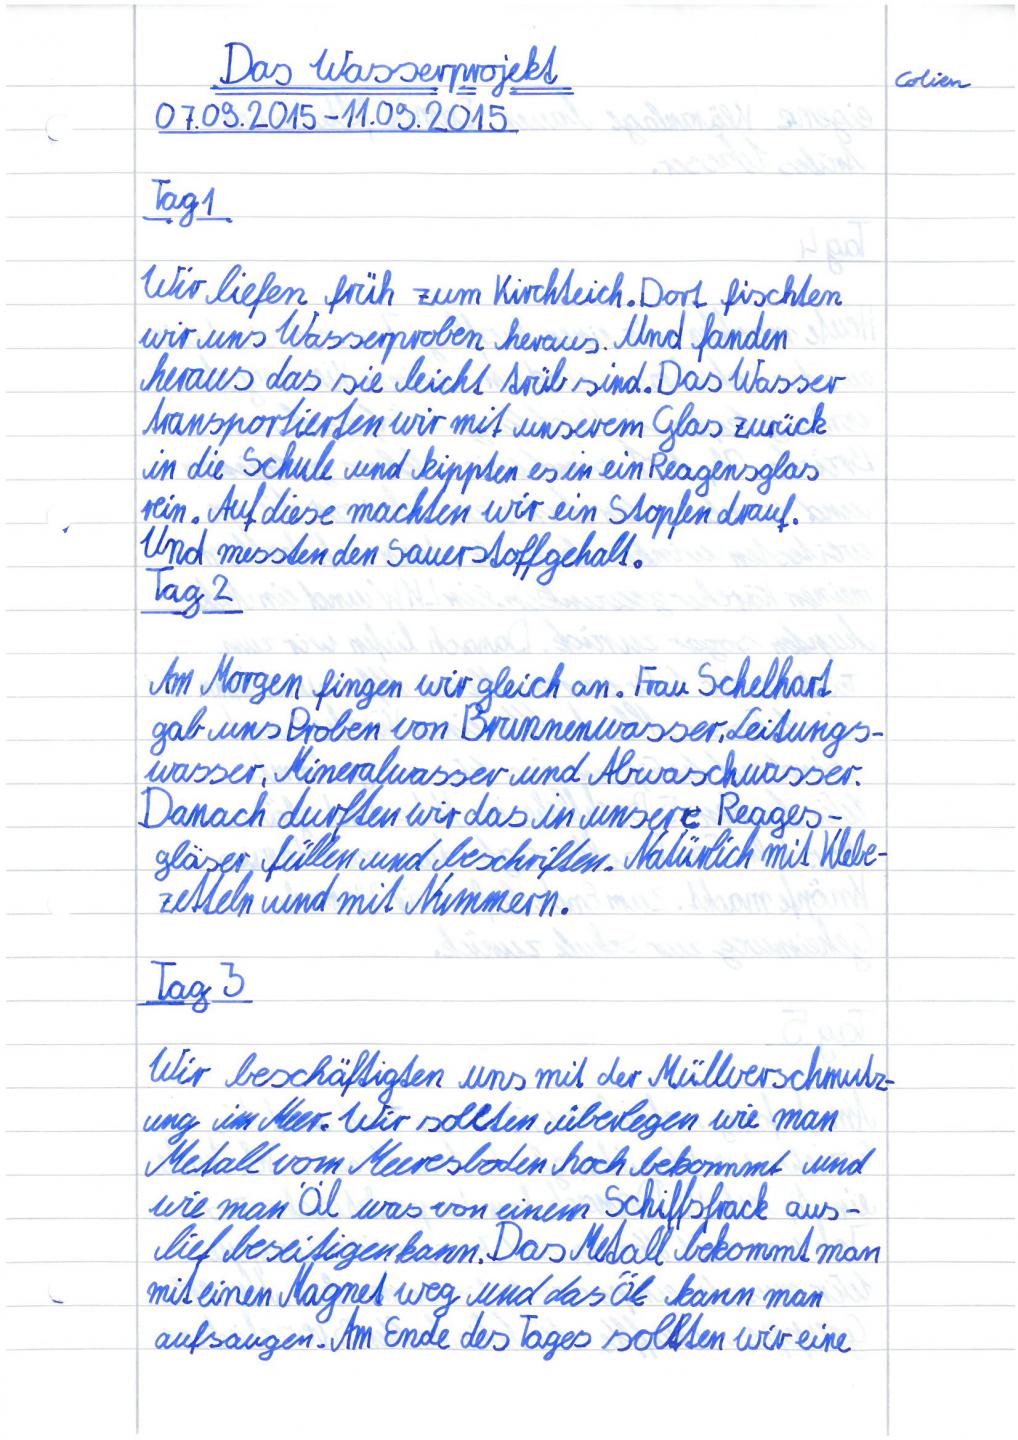 Das Wasserprojekt
Colien
07.09.2015-11.09.2015
Tag 1
Wir liefen früh zum Kirchteich. Dort fischten
wir uns Wasserproben heraus. Und fanden
heraus das sie leicht trüb sind. Das Wasser
transportierten wir mit unserem Glas zurück
in die Schule und kippten es in ein Reagensglas
rein. Auf diese machten wir ein Stopfen drauf.
Und messten den Sauerstoffgehalt.
Tag 2
Am Morgen fingen wir gleich an. Frau Schelhart
gab uns Proben von Brunnenwasser, Leitungs-
wasser, Mineralwasser und Abwaschwasser.
Danach durften wir das in unsere Reages-
gläser füllen und beschriften. Natürlich mit Klebe-
zetteln und mit Nummern.
Tag 3
Wir beschäftigten uns mit der Müllverschmutz-
ung im Meer. Wir sollten überlegen wie man
Metall vom Meeresboden hoch bekommt und
wie man Öl was von einem Schiffsfrack aus-
lief beseitigen kann. Das Metall bekommt man
mit einen Magnet weg und das Öl kann man
aufsaugen. Am Ende des Tages sollten wir eine